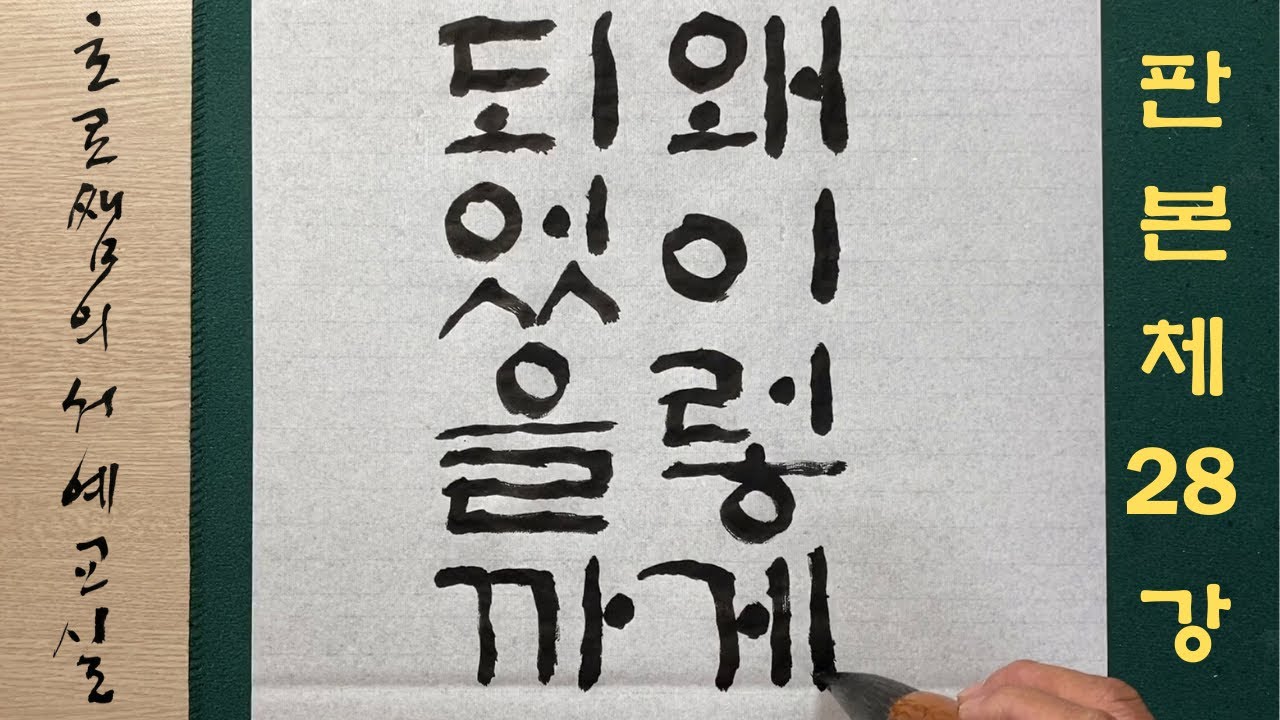 왜이렇게
되었을까
판본체28강
서예교실